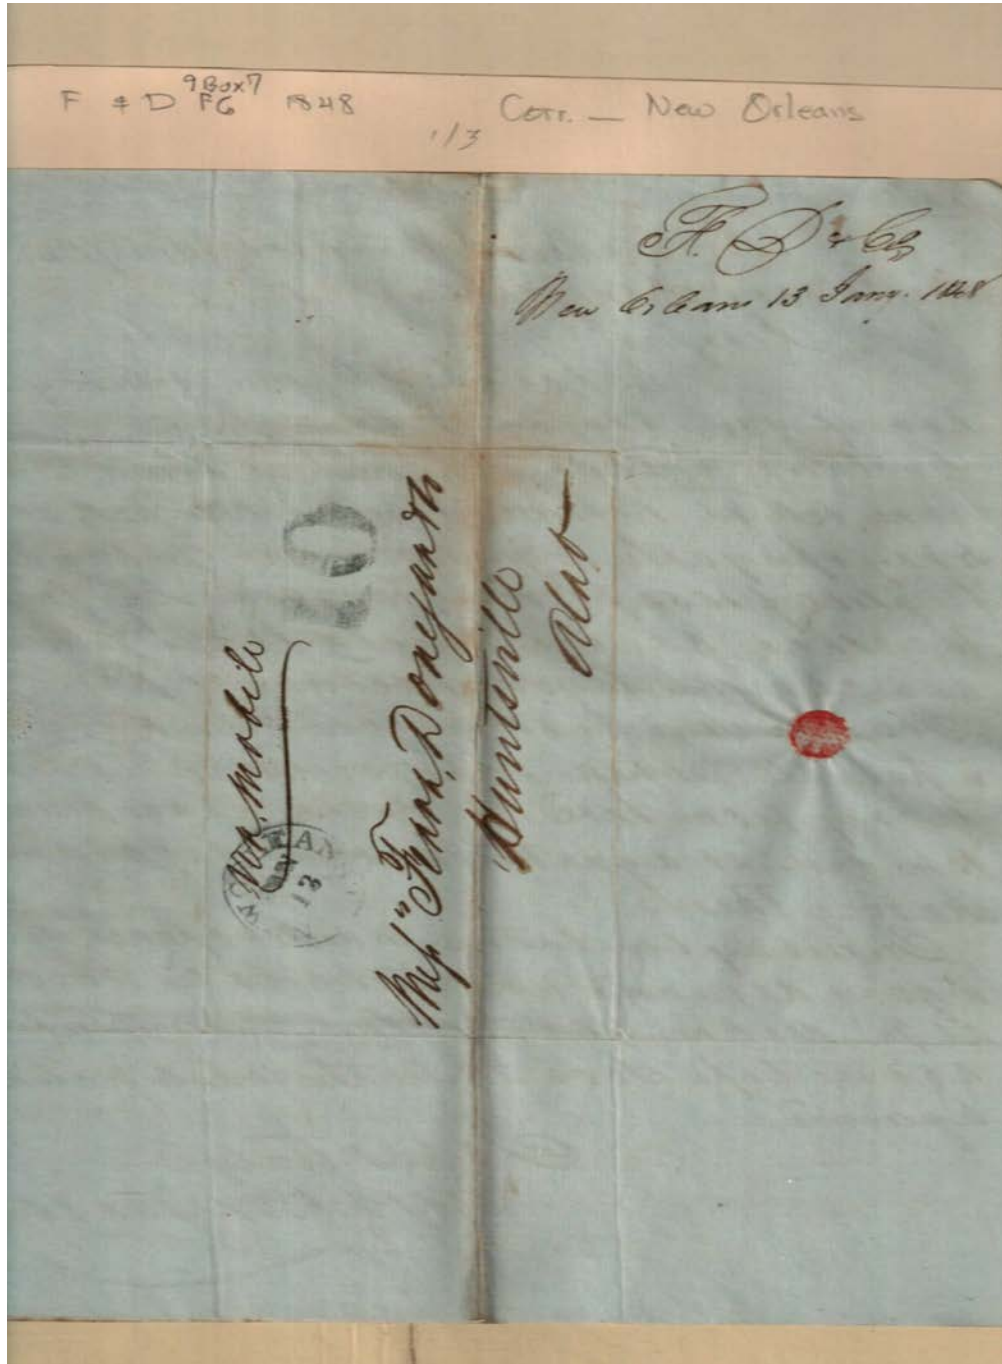 F & D 9 Box 7 F6 1848 Corr. — New Orleans
1/3
F. D & Co
New Orleans 13 Jany. 1848
Via Mobile
10
13
Mess" Fearn, Donegan & Co
Huntsville
Ala